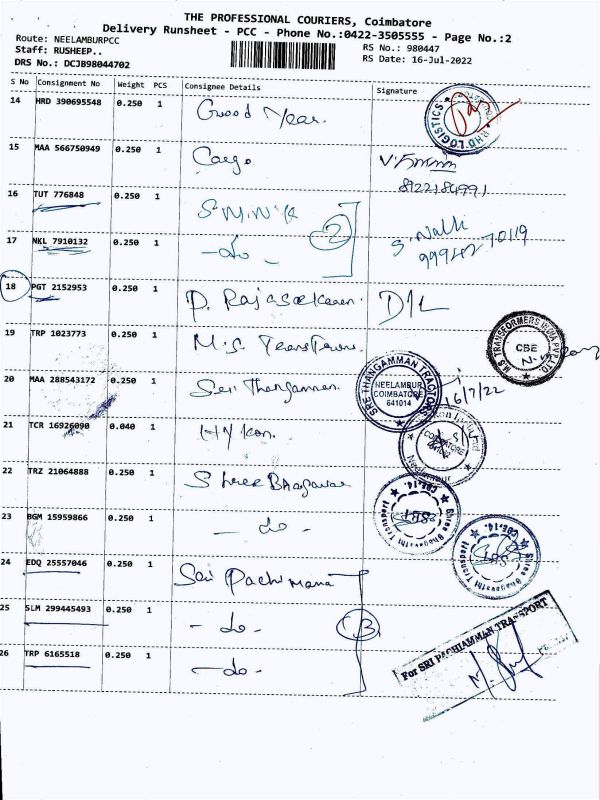 THE PROFESSIONAL COURIERS, Coimbatore
Delivery Runsheet - PCC - Phone No.:0422-3505555 - Page No.:2
Route: NEELAMBURPCC
RS No.: 980447
Staff: RUSHEEP..
RS Date: 16-Jul-2022
DRS No.: DCJB98044702
S No Consignment No Weight PCS Consignee Details Signature
14 HRD 390695548 0.250 1 Good Year.
LOGISTICS
15 MAA 566750949 0.250 1 Cargo
8922184991
16 TUT 776848 0.250 1 S.M.N.K
2
17 NKL 7910132 0.250 1 - do -
S. Nalli
18 PGT 2152953 0.250 1 P. Rajasekaran. D/L
19 TRP 1023773 0.250 1 M.S. Transformers
M.S. TRANSFORMERS INDIA PVT LTD.
CBE
20 MAA 288543172 0.250 1 Sri Thangamman.
SREE THANGAMMAN TRACTOR
NEELAMBUR
COIMBATORE
641014
16/7/22
21 TCR 16926090 0.040 1 Hykon.
COIMBATORE
Neelambur
22 TRZ 21064888 0.250 1 Shree Bhagavathi
Shree Bhagavathi Transport
CBE-14.
SBT
23 BGM 15959866 0.250 1 - do -
Shree Bhagavathi Transport
CBE-14.
24 EDQ 25557046 0.250 1 Sri Pachimana
25 SLM 299445493 0.250 1 - do -
3
For SRI PACHIAMMAN TRANSPORT
26 TRP 6165518 0.250 1 - do -